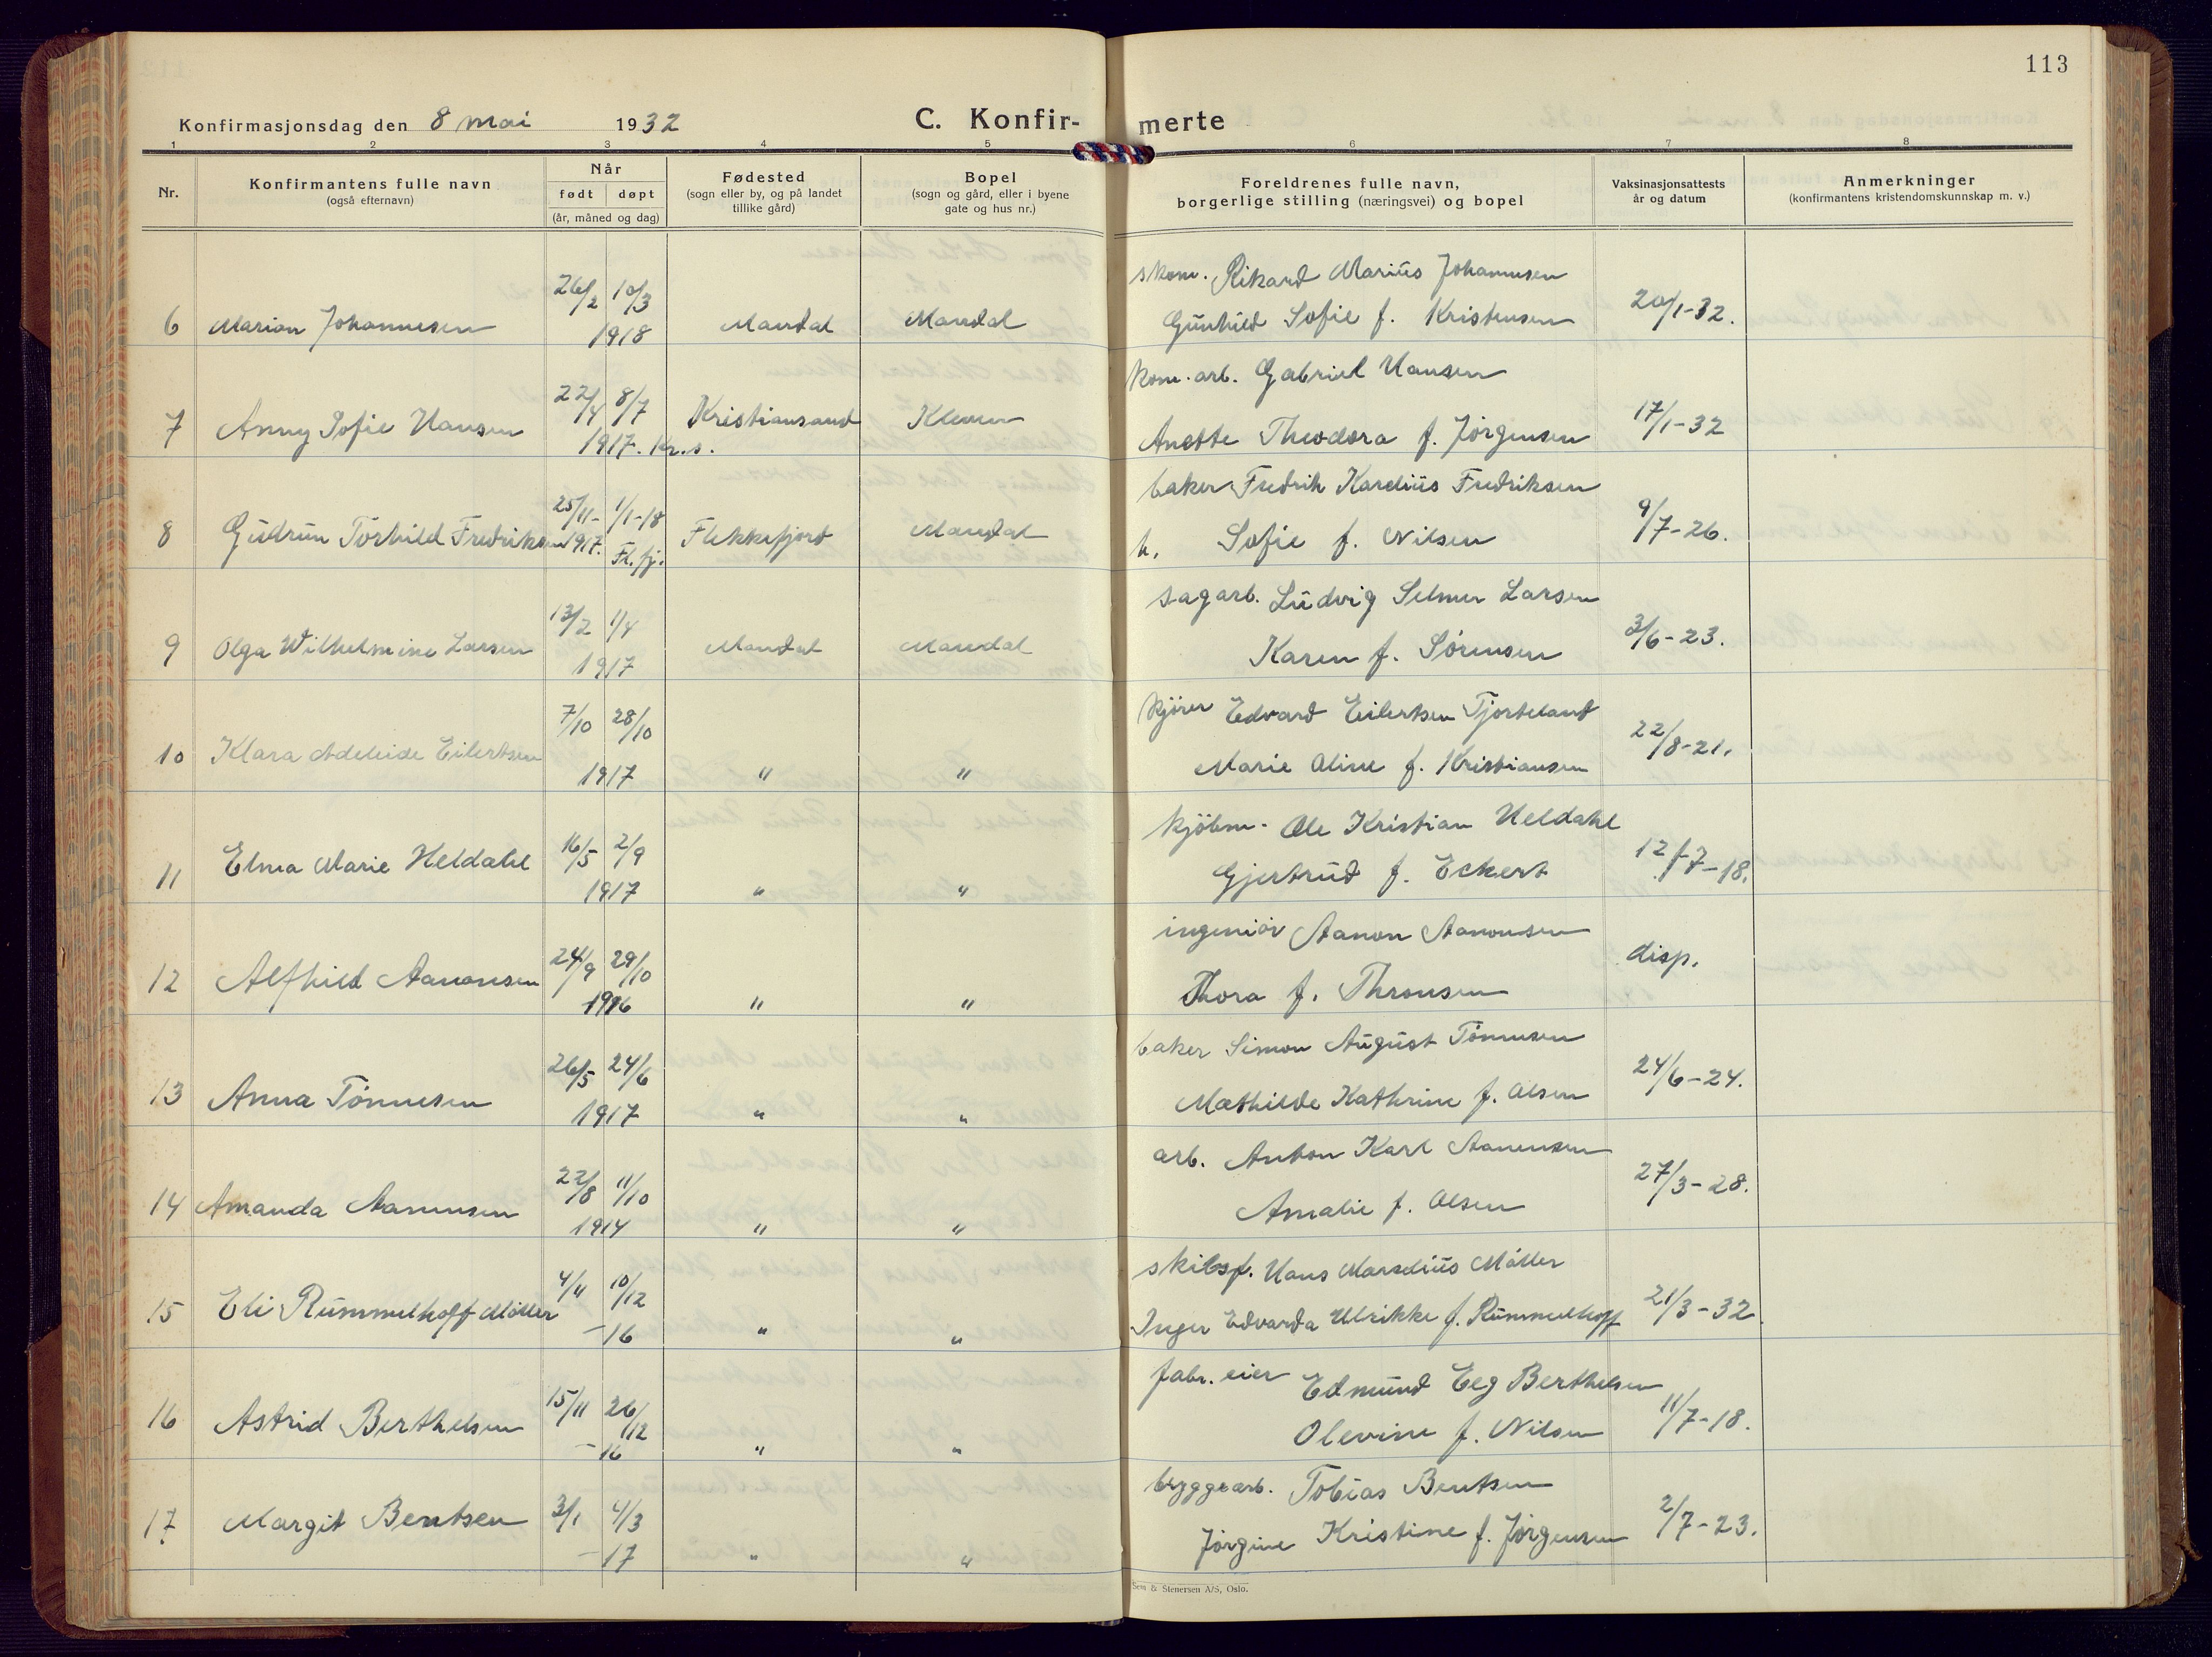 113
Konfirmasjonsdag den 8 mai 1932
C. Konfir- merte
1 2 3 4 5 6 7 8
Nr.
Konfirmantens fulle navn
(også efternavn)
Når
født døpt
(år, måned og dag)
Fødested
(sogn eller by, og på landet
tillike gård)
Bopel
(sogn og gård, eller i byene
gate og hus nr.)
Foreldrenes fulle navn,
borgerlige stilling (næringsvei) og bopel
Vaksinasjonsattests
år og datum
Anmerkninger
(konfirmantens kristendomskunnskap m. v.)
26/2 10/3 skom. Rikard Marius Johannesen
6 Marion Johannesen 1918 Mandal Mandal Gunhild Sofie f. Kristensen 20/1-32.
22/4 8/7 kom. arb. Gabriel Hansen
7 Anny Sofie Hansen 1917. Kr.s. Kristiansand Kleven Anette Theodora f. Jörgensen 17/1-32
25/11- 1/1-18 baker Fredrik Kardius Fredriksen
8 Gudrun Torhild Fredriksen 1917. Fl.fj. Flekkefjord Mandal h. Sofie f. Nilsen 9/7-26.
13/2 1/4 sagarb. Ludvig Selmer Larsen
9 Olga Wilhelmine Larsen 1917 Mandal Mandal Karen f. Sörensen 3/6-23.
7/10 28/10 kjörer Edvard Eilertsen Tjorteland
10 Klara Adeleide Eilertsen 1917 " " Marie Oline f. Kristiansen 22/8-21.
16/5 2/9 kjöbm. Ole Kristian Heldahl
11 Elna Marie Heldahl 1917 " " Gjertrud f. Eckert 12/7-18.
24/9 29/10 ingeniör Aanon Aanonsen
12 Alfhild Aanonsen 1916 " " Thora f. Thronsen disp.
26/5 24/6 baker Simon August Tönnesen
13 Anna Tönnesen 1917 " " Mathilde Kathrine f. Olsen 24/6-24.
22/8 11/10 arb. Anton Karl Aanensen
14 Amanda Aanensen 1914 " " Amalie f. Olsen 27/3-28.
4/11 10/12 skibsf. Hans Marselius Möller
15 Eli Rummelhoff Möller -16 " " Inger Edvarda Ulrikke f. Rummelhoff 21/3-32.
15/11 26/12 fabr. eier Edmund Eeg Berthelsen
16 Astrid Berthelsen -16 " " Olevine f. Nilsen 11/7-18.
3/1 4/3 bryggearb. Tobias Bentsen
17 Margit Bentsen -17 " " Jörgine Kristine f. Jörgensen 2/7-23.
Sem & Stenersen A/S, Oslo.